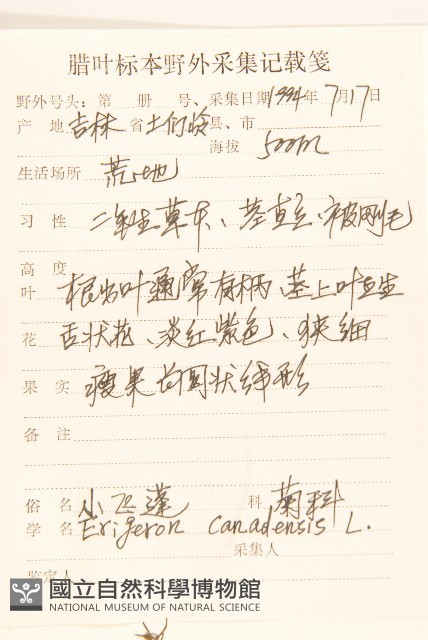 腊叶标本野外采集记载笺
野外号头:第 册 号、采集日期1994年7月17日
产 地 吉林 省 土们岭 县、市
海拔 500m
生活场所 荒地
习 性 二年生草本、茎直立、被刚毛
高 度
叶 根出叶通常有柄、茎上叶互生
花 舌状花、淡红紫色、狭细
果 实 瘦果长圆状线形
备 注
俗 名 小飞蓬 科 菊科
学 名 Erigeron Canadensis L.
采集人
鉴定人
國立自然科學博物館
NATIONAL MUSEUM OF NATURAL SCIENCE